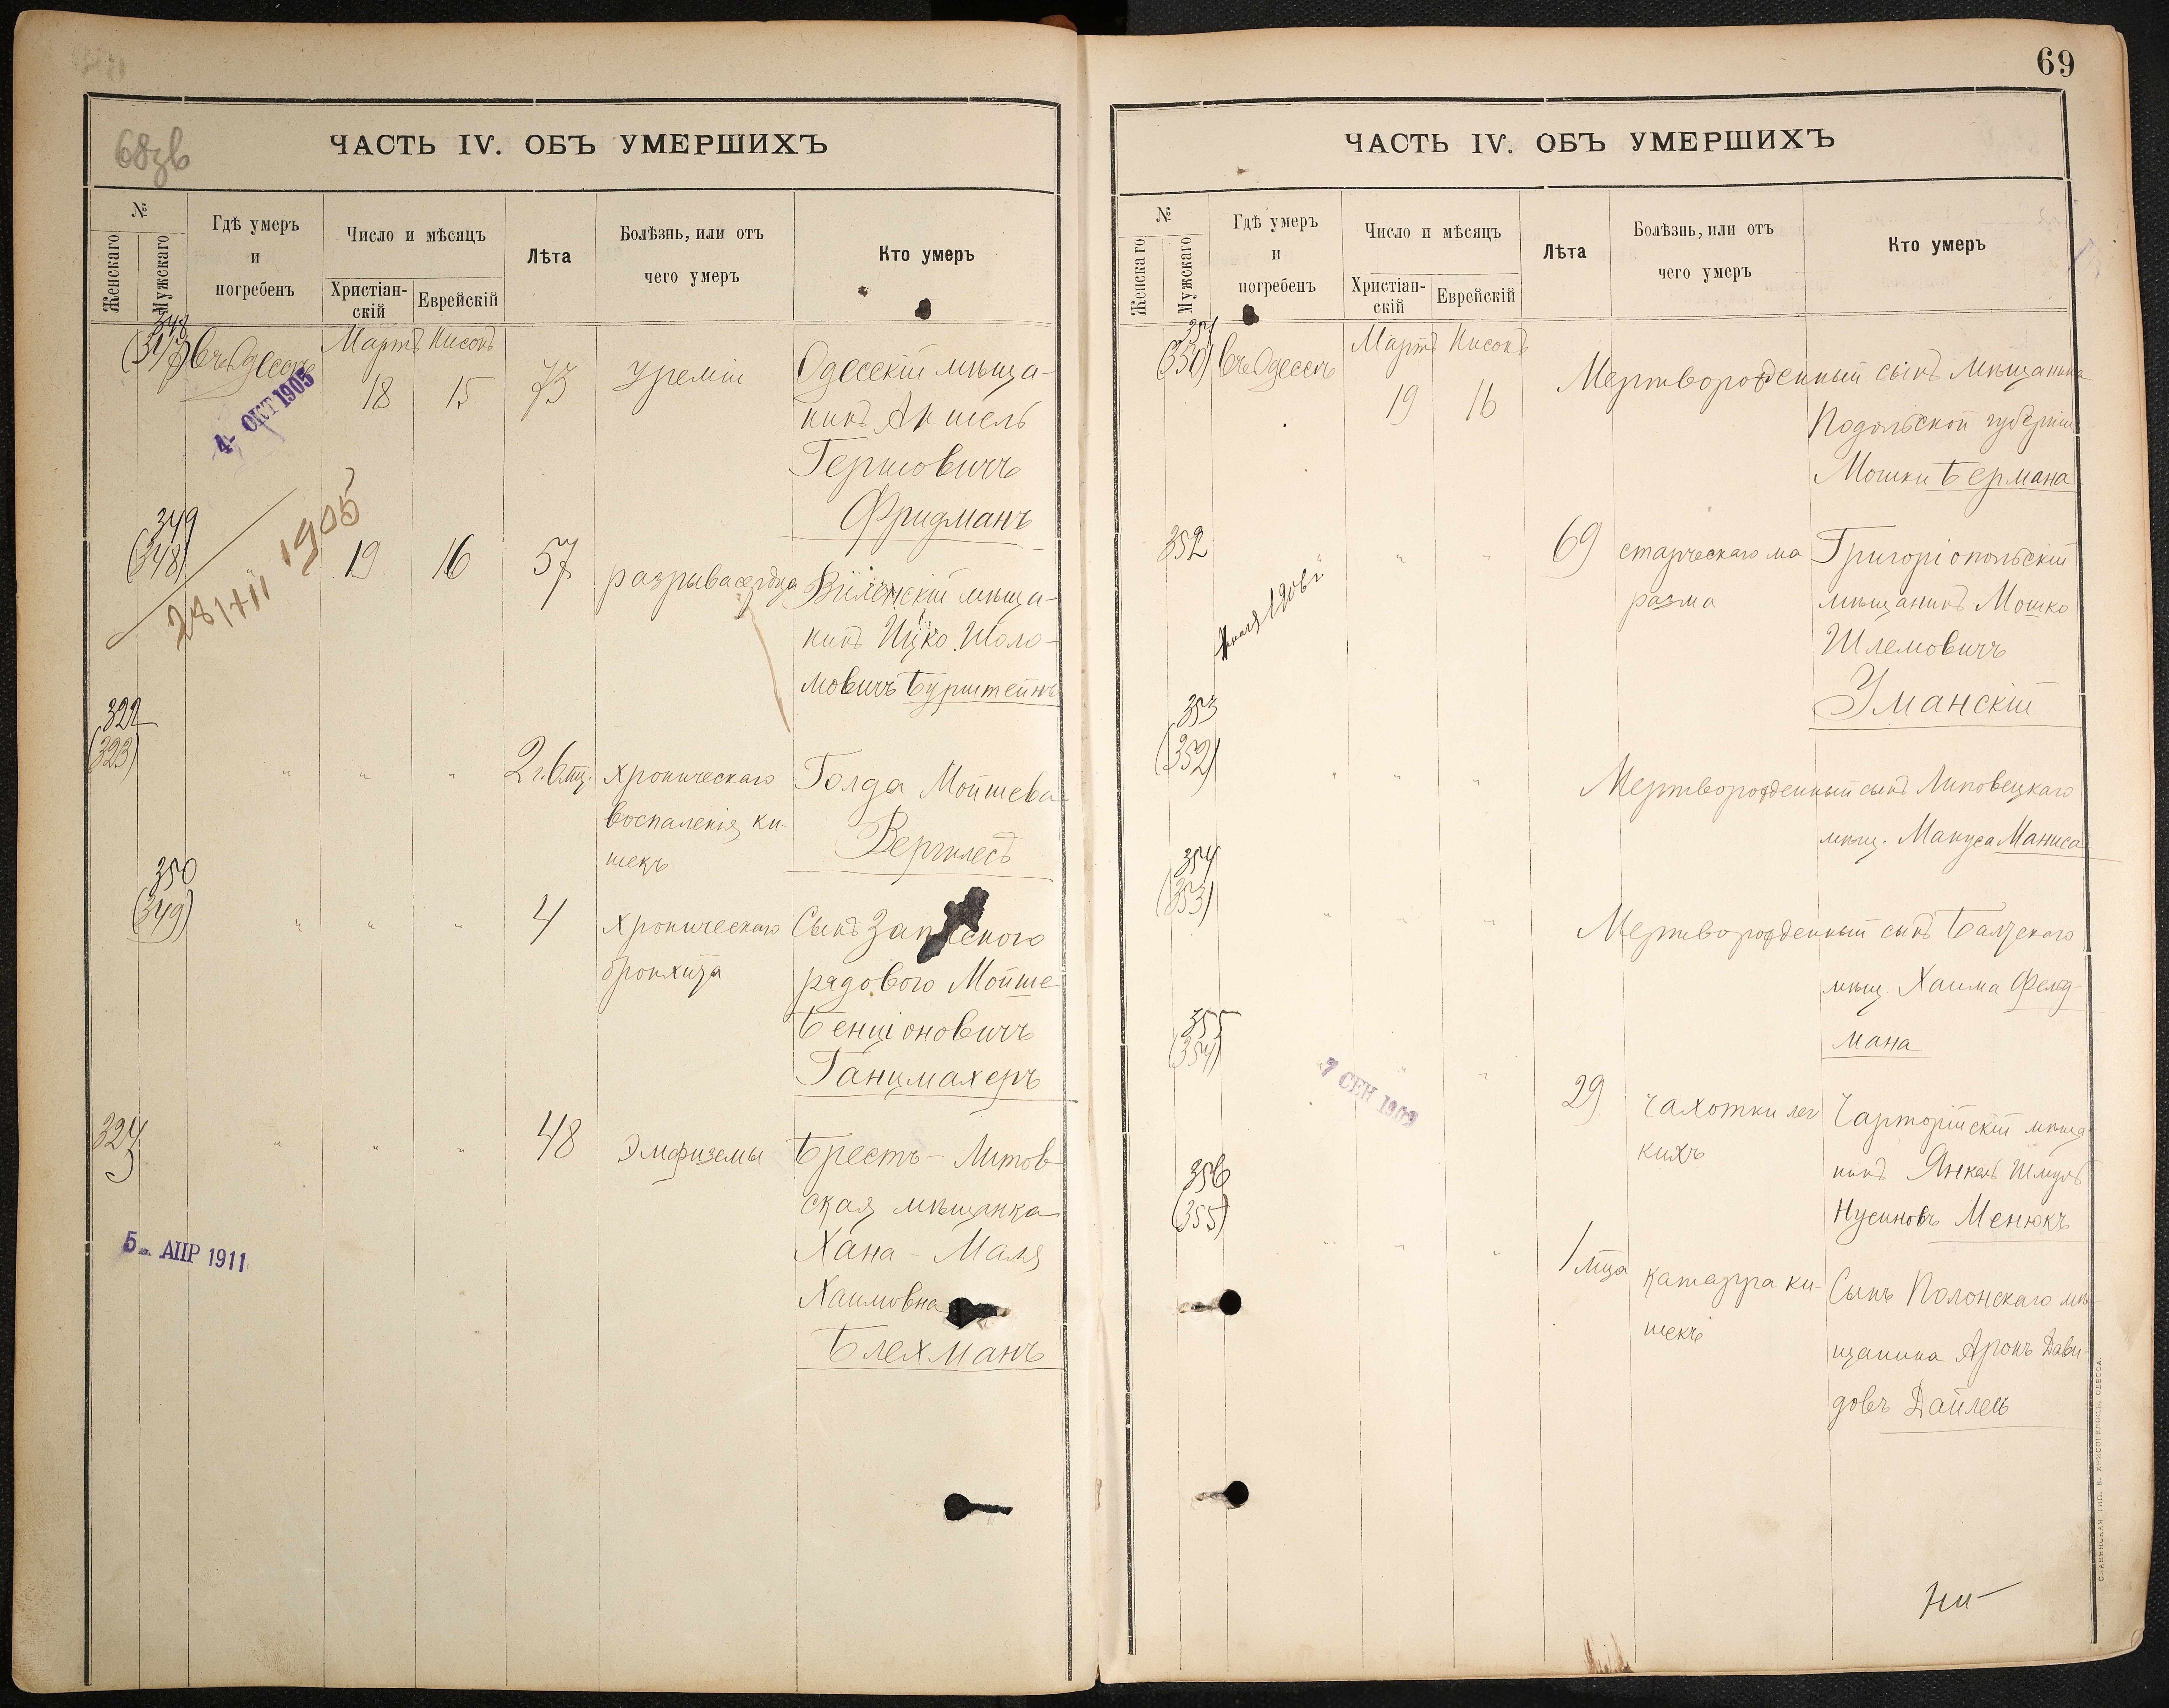 68зв
ЧАСТЬ IV. ОБЪ УМЕРШИХЪ
№
Женскаго
Мужскаго
Гдѣ умеръ
и
погребенъ
Число и мѣсяцъ
Христіан-
скій
Еврейскій
Лѣта
Болѣзнь, или отъ
чего умеръ
Кто умеръ
348
(347)
Въ Одессѣ
Мартъ
Нисонъ
18
15
73
Уреміи
Одесскій мѣща-
нинъ Аншель
Гершовичъ
Фридманъ
4- ОКТ 1905
349
(348)
"
19
16
57
разрыва сердца
Виленскій мѣща-
нинъ Ицко Шоло-
мовичъ Бурштейнъ
28/XII 1905
322
(323)
"
"
"
2 г. 6 мц.
хроническаго
воспаленія ки-
шекъ
Голда Мойшева
Вергилесъ
350
(349)
"
"
"
4
хроническаго
бронхита
Сынъ запасного
рядового Мойше
Бенціоновичъ
Ганцмахеръ
324
"
"
"
48
Эмфиземы
Брестъ-Литов
ская мѣщанка
Хана-Маля
Хаимовна
Блехманъ
5- АПР 1911
69
ЧАСТЬ IV. ОБЪ УМЕРШИХЪ
№
Женскаго
Мужскаго
Гдѣ умеръ
и
погребенъ
Число и мѣсяцъ
Христіан-
скій
Еврейскій
Лѣта
Болѣзнь, или отъ
чего умеръ
Кто умеръ
351
(350)
Въ Одессѣ
Мартъ
Нисонъ
19
16
Мертворожденный сынъ мѣщанина
Подольской губерніи
Мошки Бермана
352
"
"
69
старческаго ма
разма
Григоріопольскій
мѣщанинъ Мошко
Шлемовичъ
Уманскій
353
(352)
"
"
"
Мертворожденный сынъ Липовецкаго
мѣщ. Мануса Маниса
354
(353)
"
"
"
Мертворожденный сынъ Балтскаго
мѣщ. Хаима Фельд-
мана
355
(354)
"
"
29
чахотки лег
кихъ
Чарторійскій мѣща
нинъ Янкель Шмуль
Нусиновъ Менюкъ
7 СЕН 1909
356
(355)
"
"
"
1 мца
катарра ки-
шекъ
Сынъ Полонскаго мѣ-
щанина Аронъ Дави-
довъ Дайлесъ
СЛАВЯНСКАЯ ТИП. Е. ХРИСОГЕЛОСЪ, ОДЕССА.